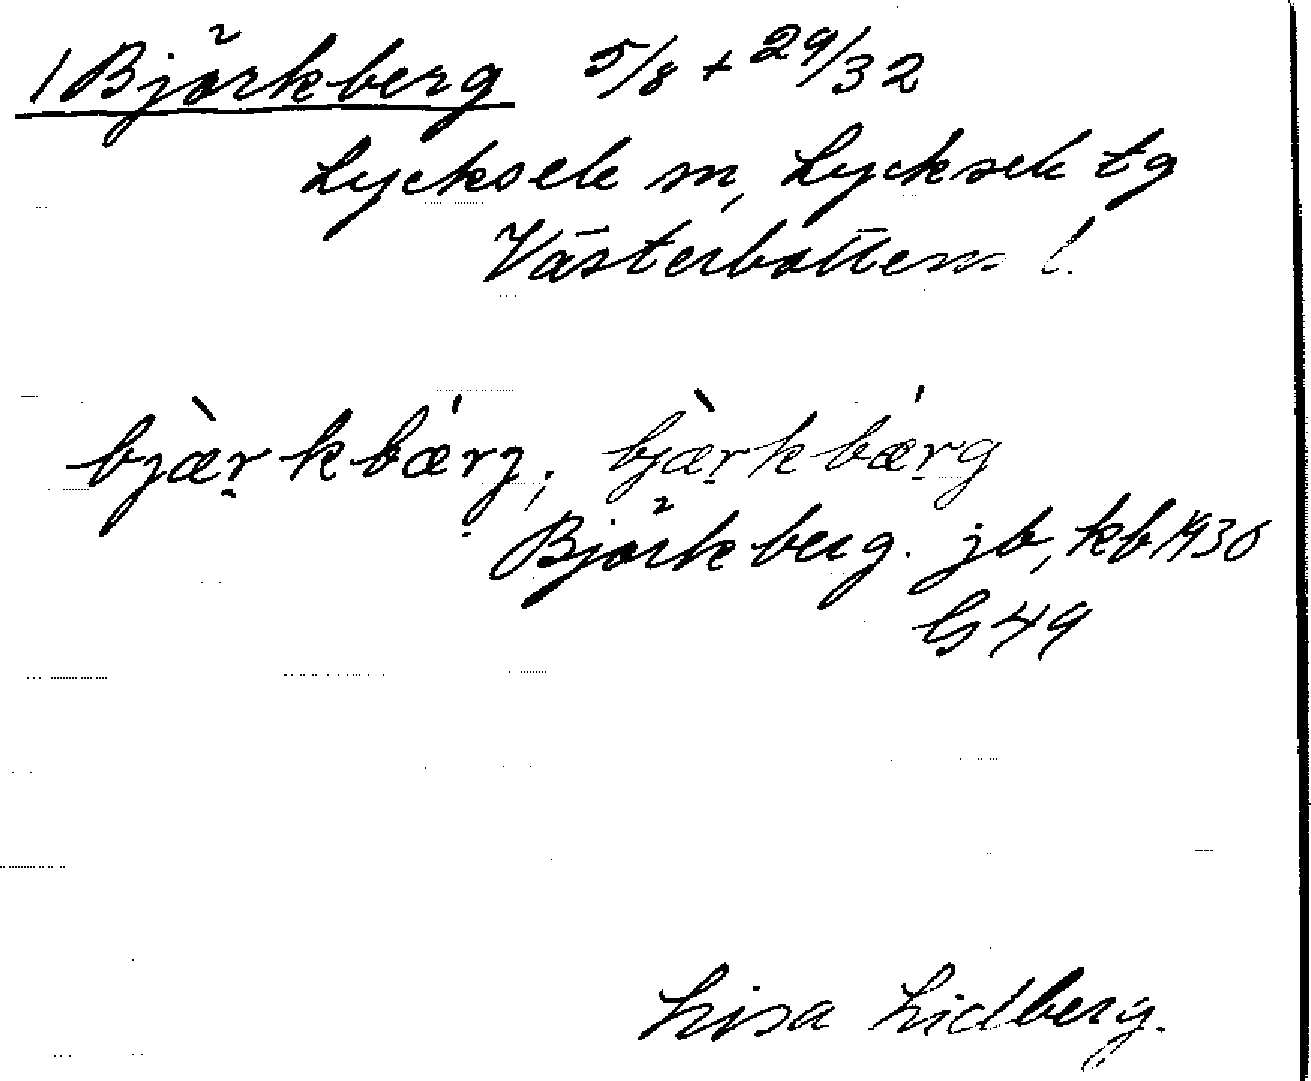 /Björkberg 5/8 + 29/32
Lycksele m, Lycksele tg
Västerbottens l.
bjæ̀r̤kbǽrj; bjæ̀r̤kbǽr̤g
Björkberg. jb, kb 1930
G 49
Lisa Lidberg.